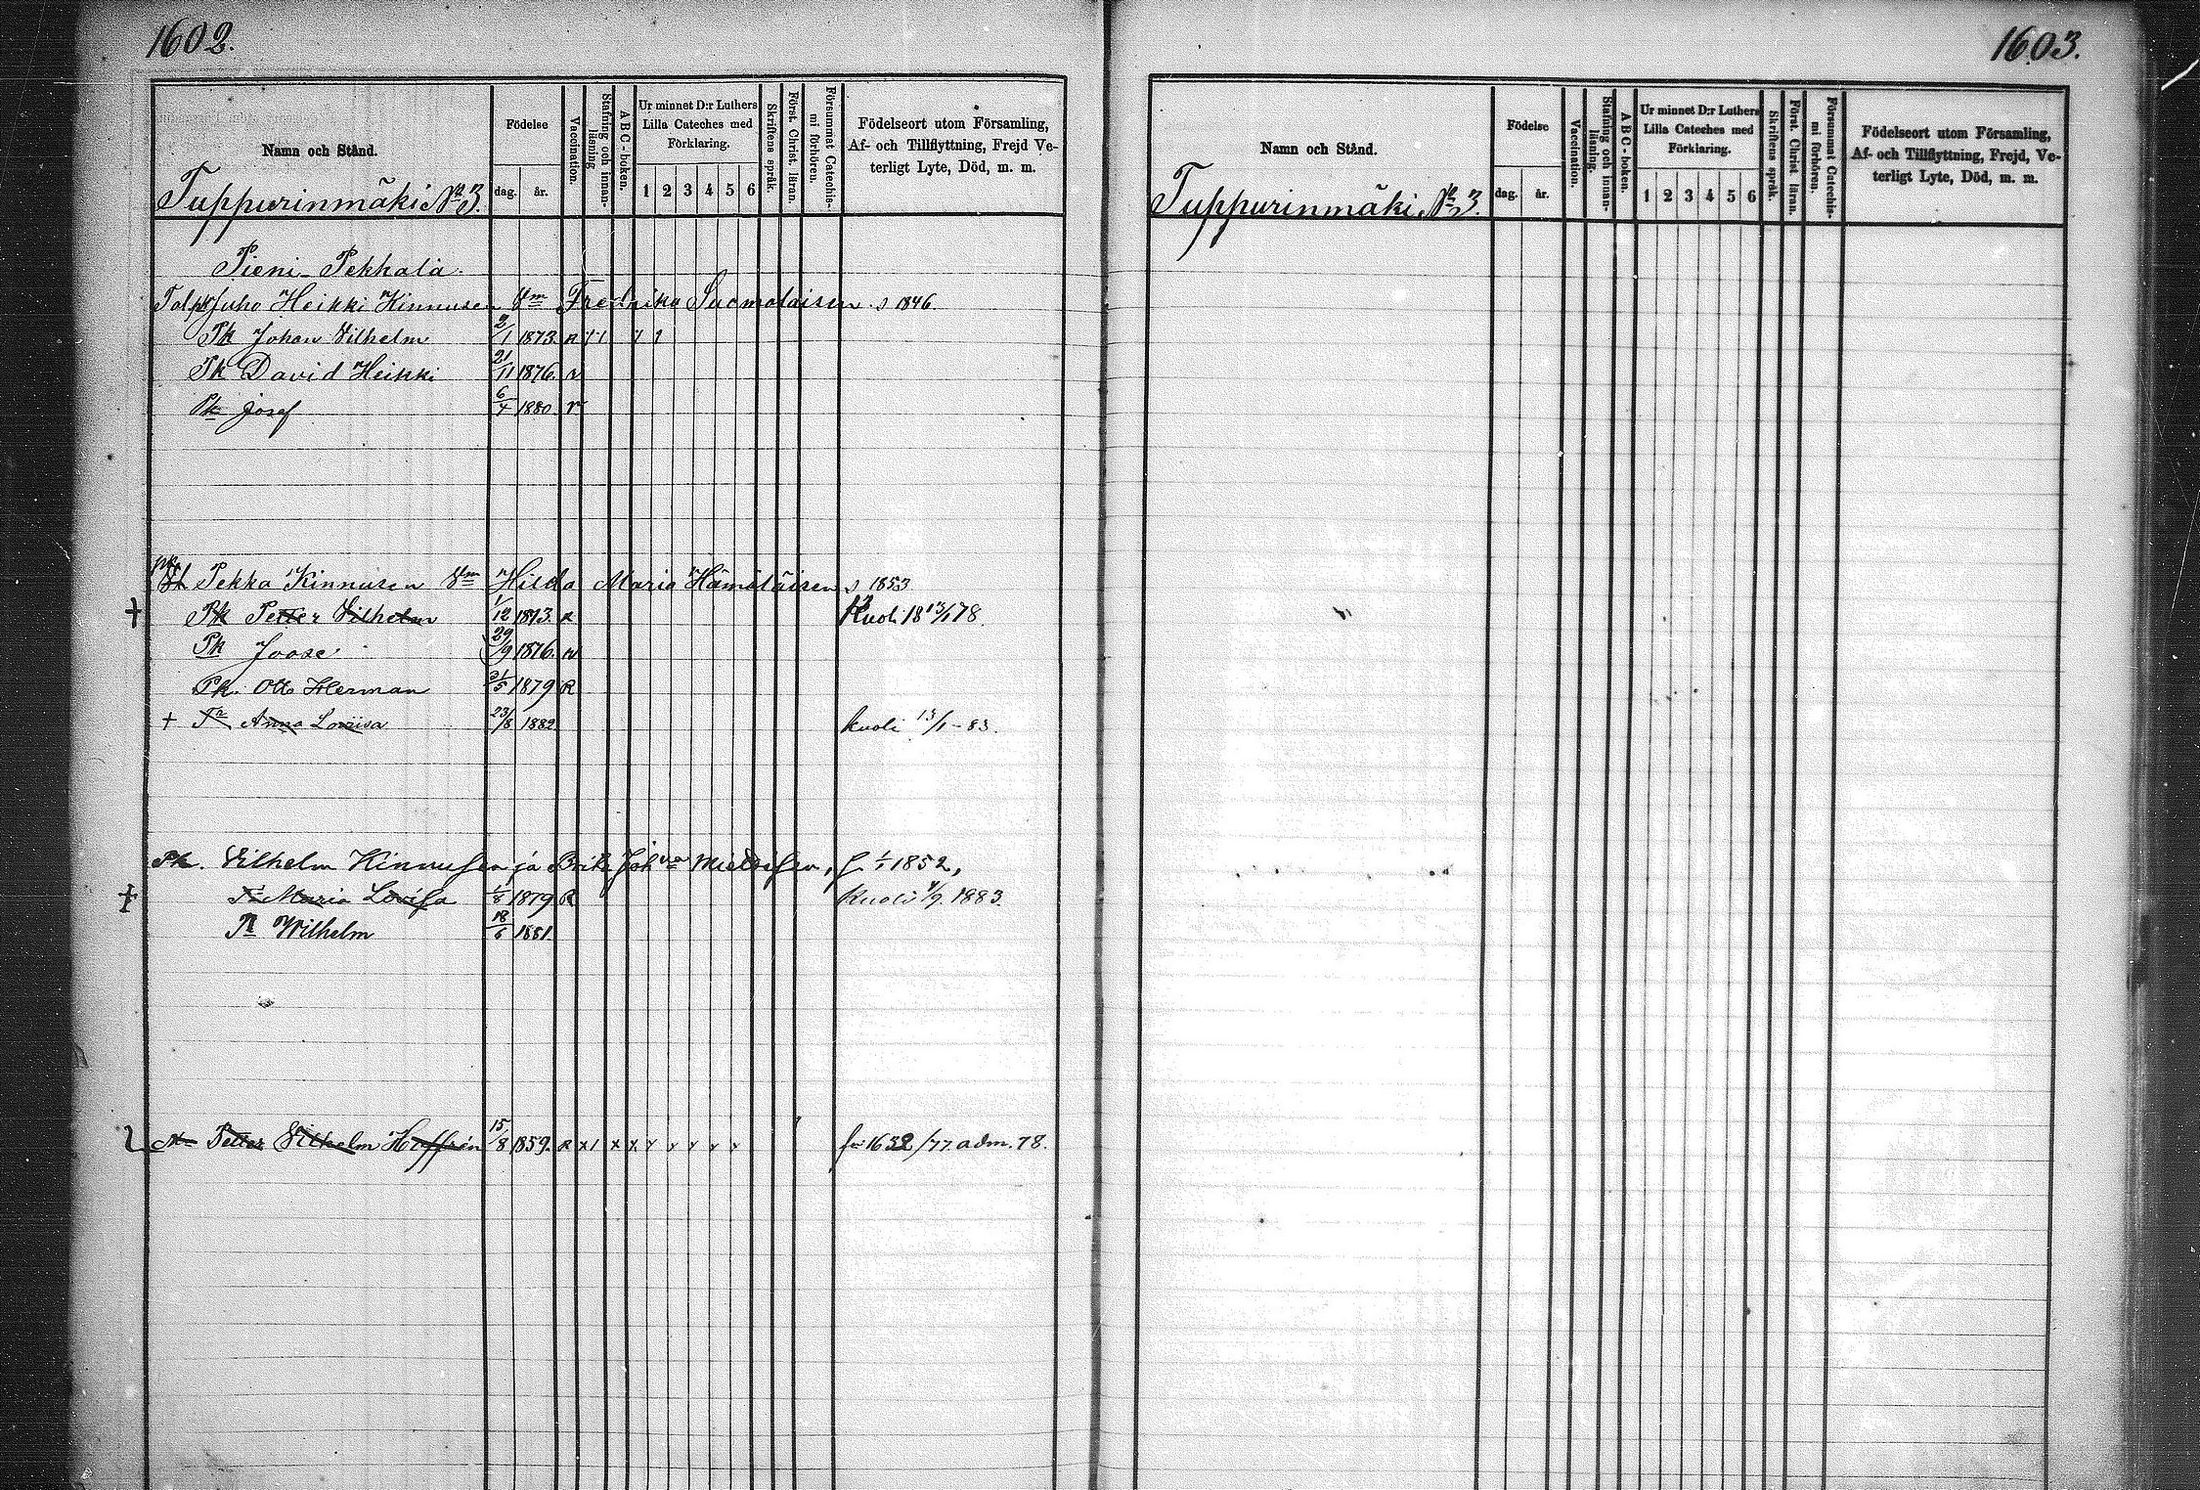 1602.
Namn och Stånd.
Födelse
dag. år.
Vaccination.
Stafning och innan-läsning
ABC-boken.
Ur minnet D:r Luthers
Lilla Cateches med
Förklaring.
1 2 3 4 5 6
Skriftens språk.
Först. Christ. läran.
Försummat Catechis-mi förhören.
Födelseort utom Församling,
Af- och Tillflyttning, Frejd Ve-
terligt Lyte, Död, m. m.
Tuppurinmäki No 3.
Pieni-Pekkala.
Juho Heikki Kinnusen Vm Fredrika Suomalaisen s 1846.
Pk Johan Vilhelm 2/1 1873. R
Pk David Heikki 21/11 1876. v
Pk Josef 6/4 1880 v
Pekka Kinnusen Vm Hilda Maria Hämäläisen s 1853
+ Pk Petter Vilhelm 1/12 1873. R Kuoli 18 13/1 78.
Pk Joose 29/9 1876. v
Pk. Otto Herman 1879 R
+ Tr Anna Loviisa 23/8 1882 kuoli 13/1-83.
Pk. Vilhelm Kinnusen ja Joh 1852,
+ Maria Lovisa 1/8 1879 R Kuoli 4/9. 1883.
Wilhelm 18/6 1881.
Petter Vilhelm Hoffrén 15/8 1859. R x 1 x x fr 1632/77. adm. 78.
1603.
Namn och Stånd.
Födelse
dag. år.
Vaccination.
Stafning och innan-läsning.
ABC-boken.
Ur minnet D:r Luthers
Lilla Cateches med
Förklaring.
1 2 3 4 5 6
Skriftens språk.
Först. Christ läran.
Försummat Catechis-mi förhören.
Födelseort utom Församling,
Af- och Tillflyttning, Frejd, Ve-
terligt Lyte, Död, m. m.
Tuppurinmäki No 3.